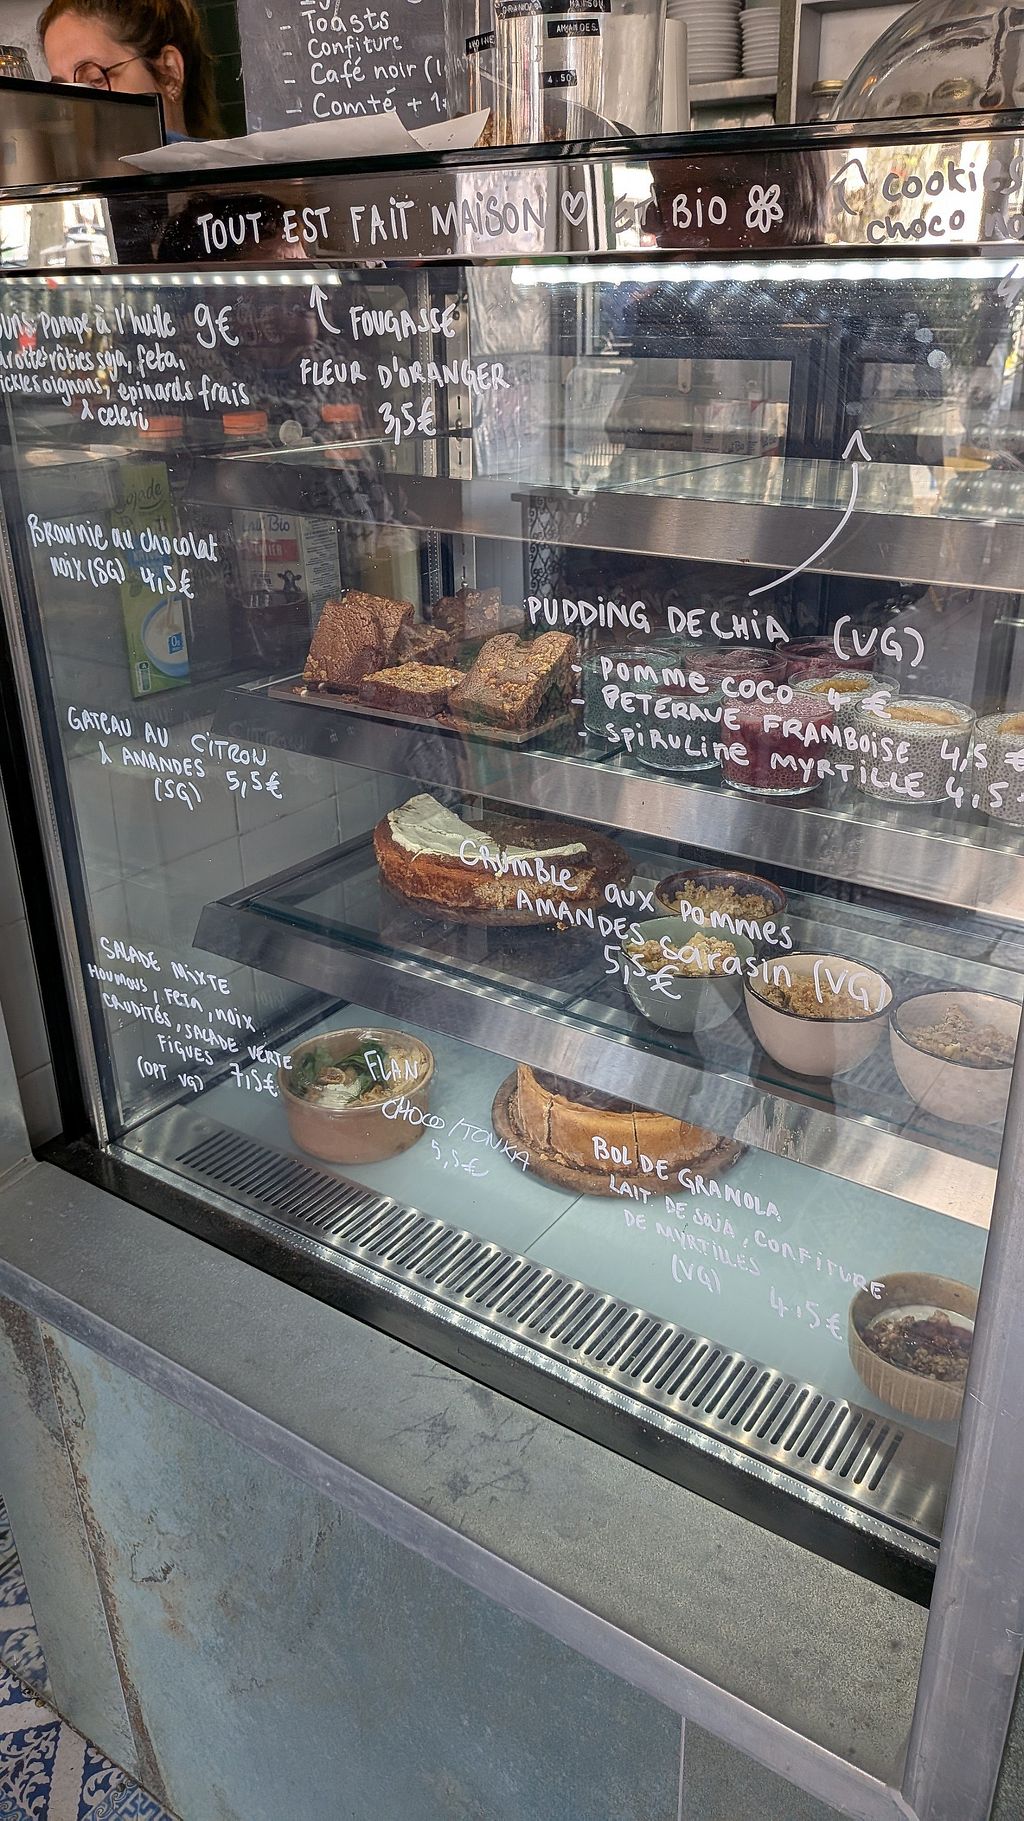 - Toasts
- Confiture
- Café noir
- Comté + 1
MAISON
AMANDES.
4.50
TOUT EST FAIT MAISON ♡ ET BIO
cooki
choco
Pompe à l'huile 9€
rôties soja, feta,
oignons, épinards frais
& celeri
FOUGASSE
FLEUR D'ORANGER
3,5€
Sojade
Lait Bio
ENTIER
Brownie au chocolat
noix (SG) 4,5€
PUDDING DE CHIA (VG)
- POMME COCO 4€
- BETERAVE FRAMBOISE 4,5€
- SPIRULINE MYRTILLE 4,5
GATEAU AU CITRON
& AMANDES 5,5€
(SG)
CRUMBLE aux POMMES
AMANDES Sarasin (VG)
5,5€
SALADE MIXTE
HOUMOUS, FETA, NOIX
CRUDITÉS, SALADE VERTE
FIGUES 7,5€
(OPT VG)
FLAN
CHOCO/TONKA
5,5€
BOL DE GRANOLA
LAIT DE SOJA, CONFITURE
DE MYRTILLES
(VG) 4,5€